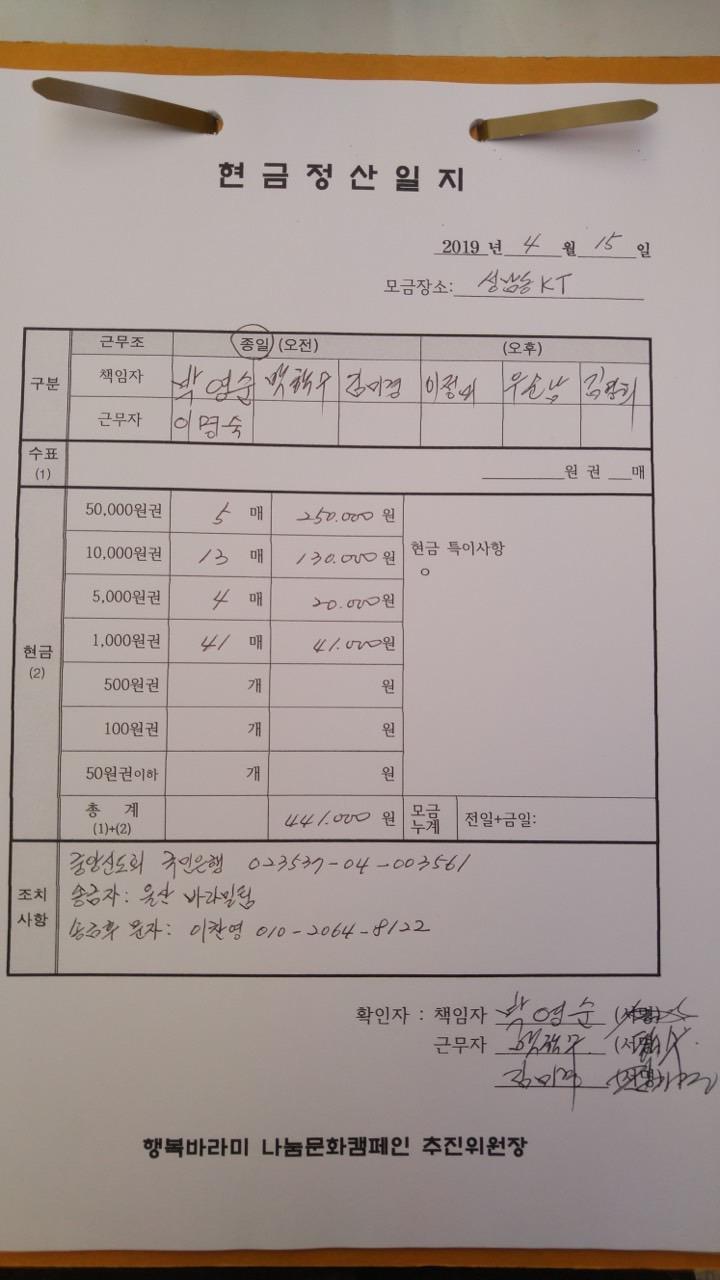 현금정산일지
2019 년 4 월 15 일
모금장소: 성남동 KT
구분 근무조 종일 (오전) (오후)
책임자 박영순 김미경 이정미 우순남
근무자 이명숙
수표 (1) 원권 매
현금 (2)
50,000원권 5 매 250.000 원
10,000원권 13 매 130.000 원
5,000원권 4 매 20.000 원
1,000원권 41 매 41.000 원
500원권 개 원
100원권 개 원
50원권이하 개 원
현금 특이사항
ㅇ
총 계 (1)+(2) 441.000 원 모금누계 전일+금일:
조치사항
중앙신도회 국민은행 023537-04-003561
송금자: 울산 바라밀팀
송금후 문자: 이찬영 010-2064-8122
확인자 : 책임자 박영순 (서명)
근무자 (서명)
김미경 (서명)
행복바라미 나눔문화캠페인 추진위원장